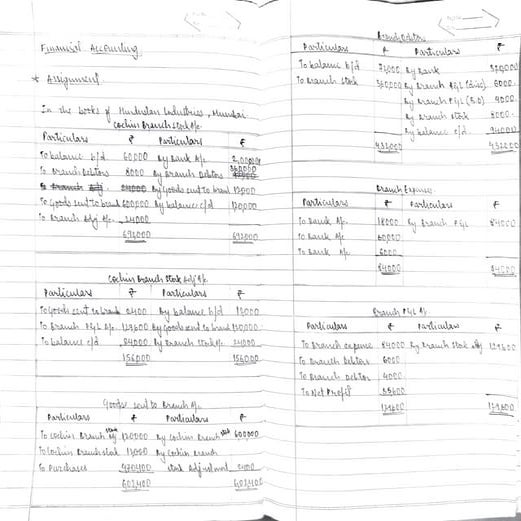 Financial Accounting
* Assignment
In the books of Hindustan Industries, Mumbai
Cochin Branch Stock A/c
Particulars ₹ Particulars ₹
To balance b/d 60000 By Bank A/c
To Branch Debtors 8000 By Branch Debtors 360000
By Goods sent to bran 12000
To Goods sent to bran 600000 By balance c/d 120000
To Branch Adj A/c 24000
692000 692000
Cochin Branch Stock Adj A/c
Particulars ₹ Particulars ₹
To Goods sent to bran 2400 By balance b/d 12000
To Branch P&L A/c 129600 By Goods sent to bran 120000
To balance c/d 24000 By Branch Stock A/c 24000
156000 156000
Goods sent to Branch A/c
Particulars ₹ Particulars ₹
To Cochin Branch stk adj 120000 By Cochin Branch stock 600000
To Cochin Branch stock 12000 By Cochin Branch
To Purchases 470400 stock Adjustment 2400
602400 602400
Branch Debtors
Particulars ₹ Particulars ₹
To balance b/d 72000 By Bank
To Branch Stock 360000 By Branch P&L (Disc) 6000
By Branch P&L (B.D) 4000
By Branch stock 8000
By balance c/d
432000 432000
Branch Expenses
Particulars ₹ Particulars ₹
To Bank A/c 18000 By Branch P&L 84000
To Bank A/c 60000
To Bank A/c 6000
84000 84000
Branch P&L A/c
Particulars ₹ Particulars ₹
To Branch expense 84000 By Branch Stock adj 129600
To Branch Debtors 6000
To Branch Debtor 4000
To Net Profit 35600
129600 129600